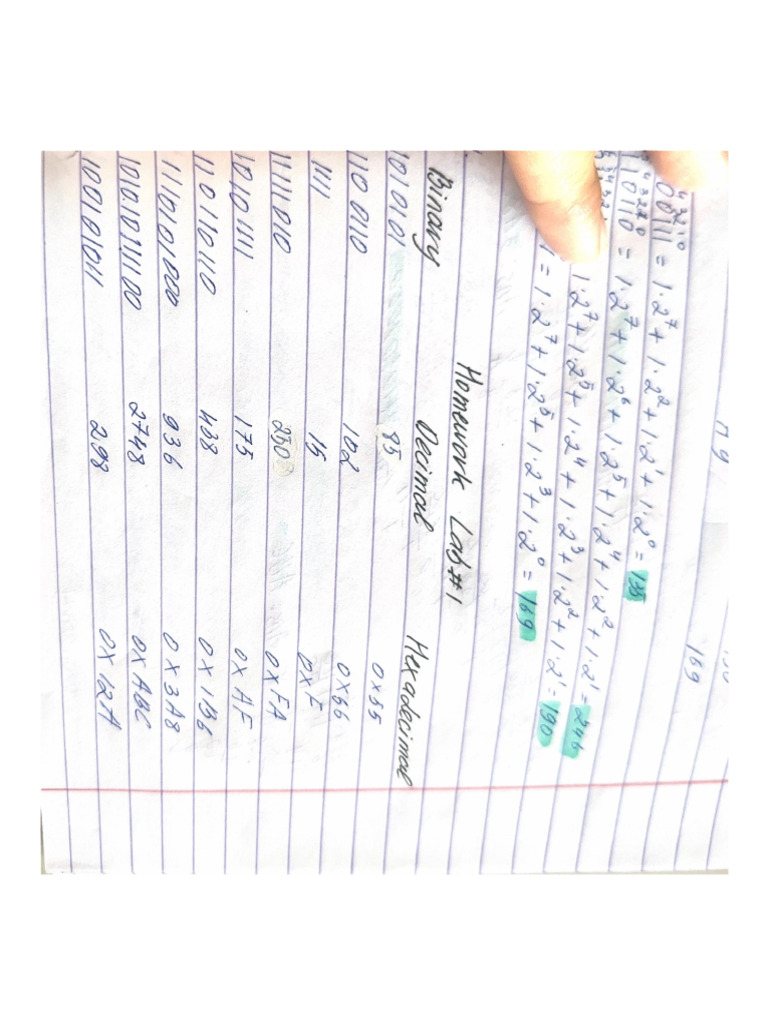 169
00111 = 1·2⁷ + 1·2² + 1·2¹ + 1·2⁰ = 135
10110 = 1·2⁷ + 1·2⁶ + 1·2⁵ + 1·2⁴ + 1·2² + 1·2¹ = 246
1·2⁷ + 1·2⁵ + 1·2⁴ + 1·2³ + 1·2² + 1·2¹ = 190
1 = 1·2⁷ + 1·2⁵ + 1·2³ + 1·2⁰ = 169
Homework Lab #1
Binary Decimal Hexadecimal
1010101 85 0x55
1100110 102 0x66
1111 15 0xF
11111010 250 0xFA
10101111 175 0xAF
110110110 438 0x1B6
1110101000 936 0x3A8
101010111100 2748 0xABC
100101011 298 0x12A